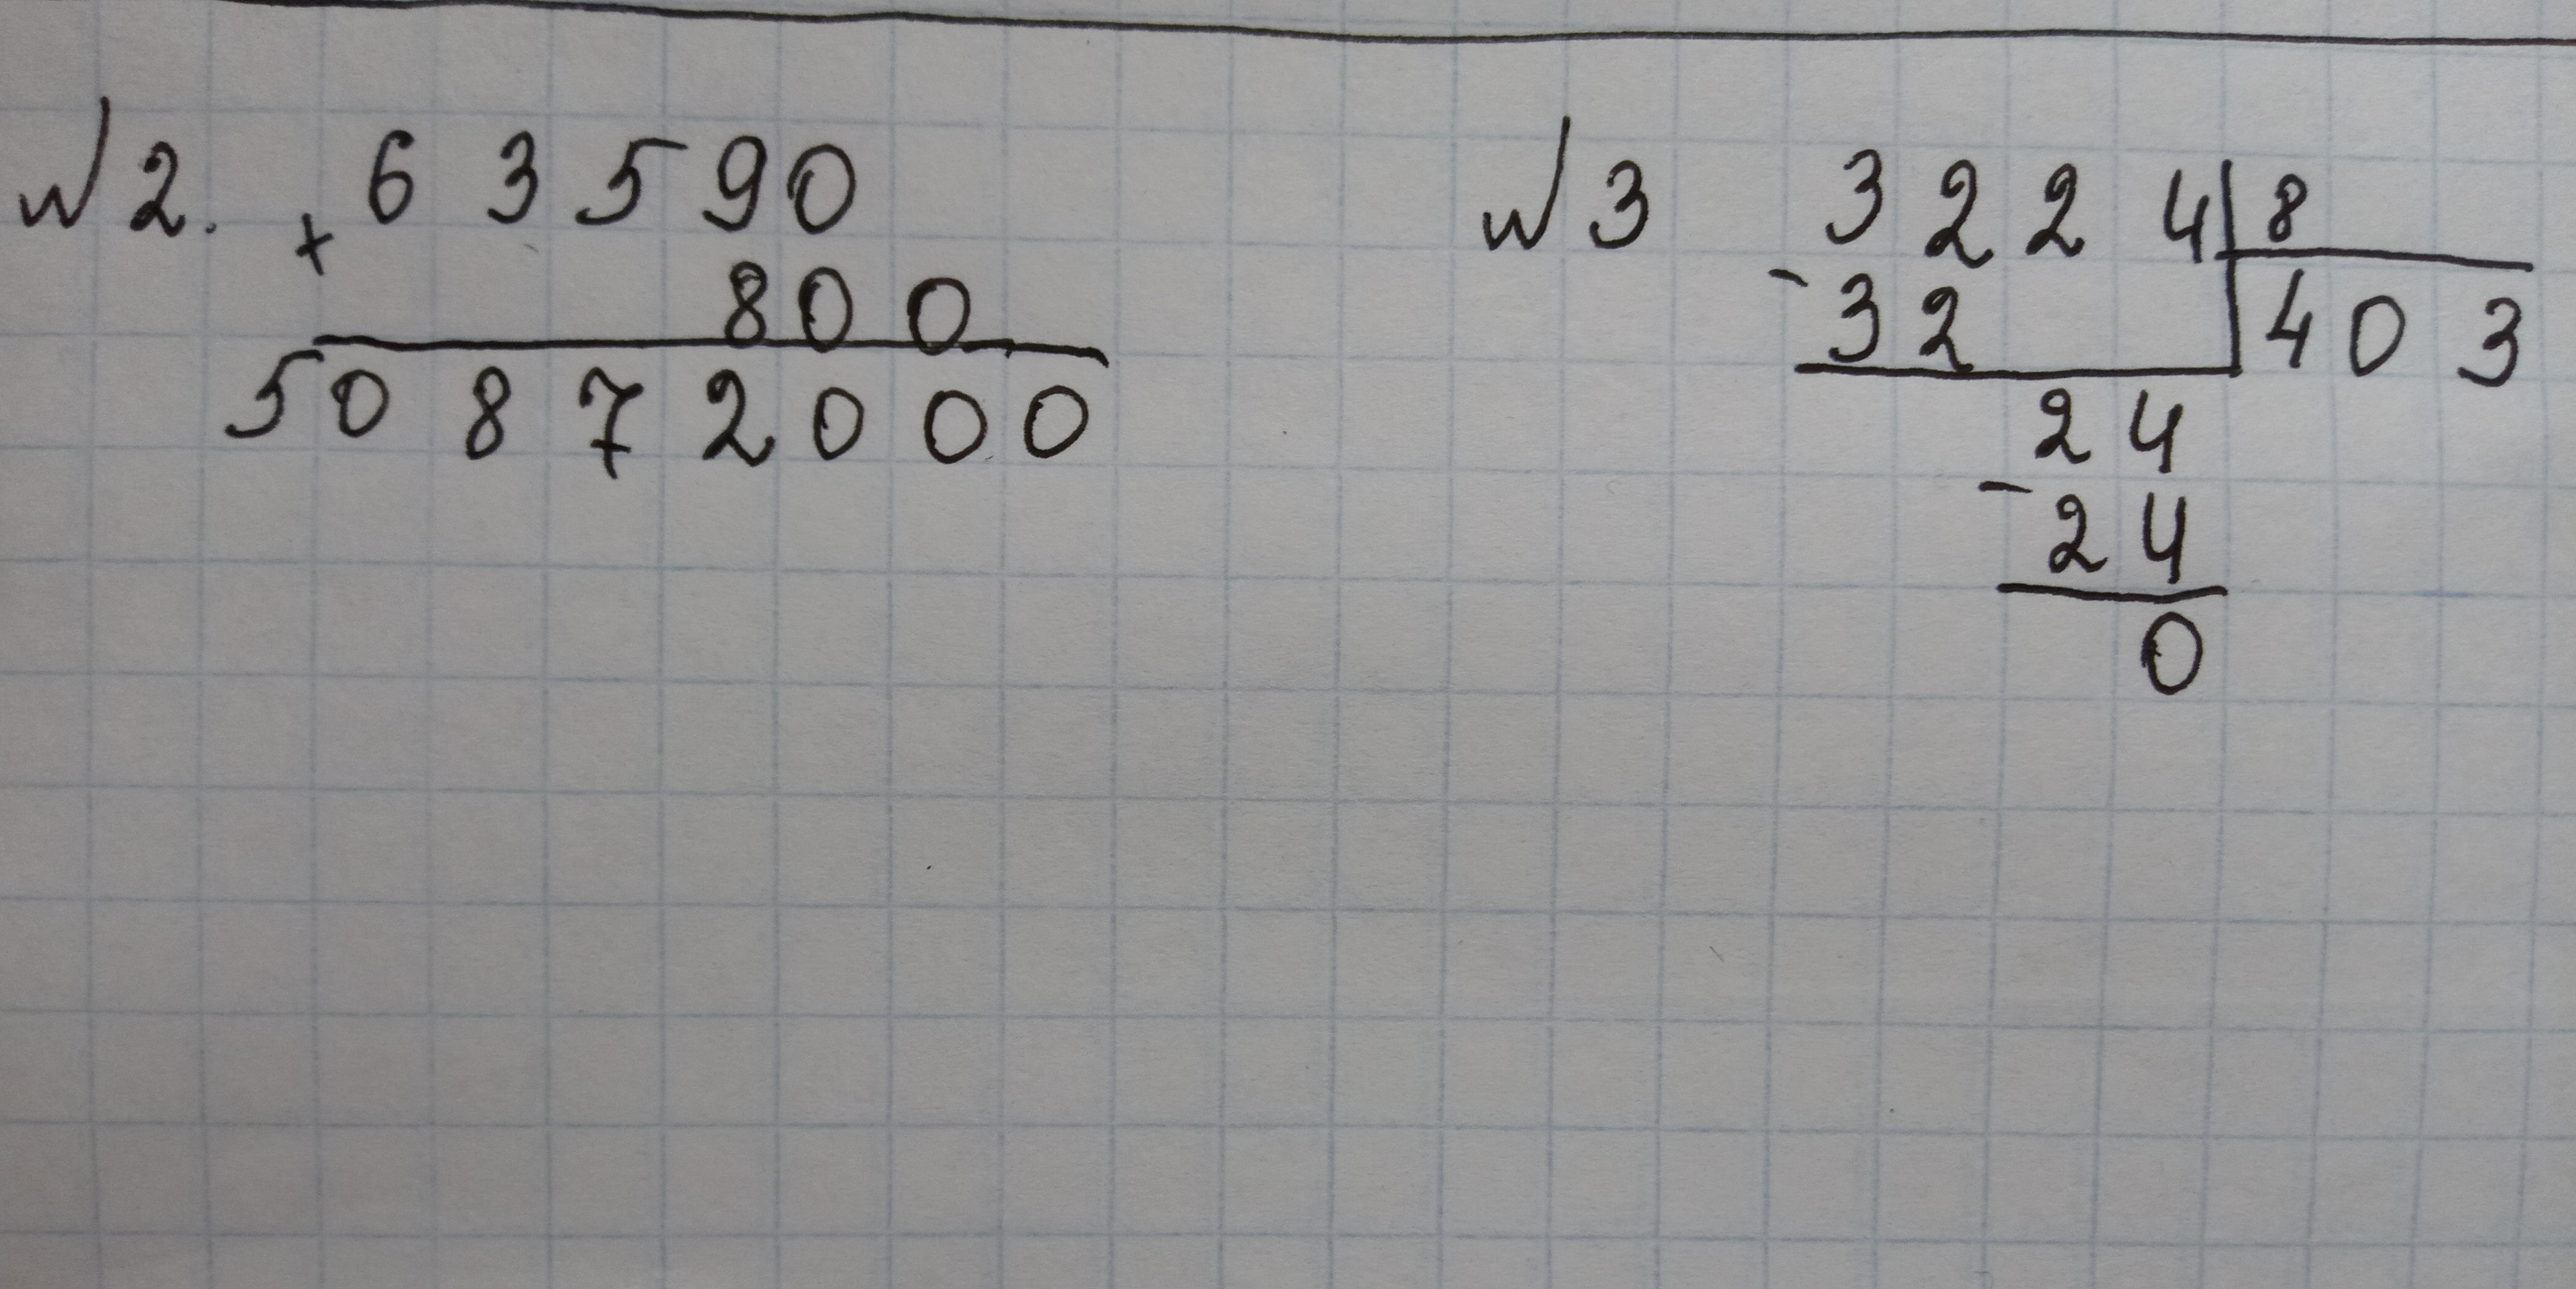 №2. × 63590
800
50872000
№3 3224 | 8
- 32 | 403
24
- 24
0